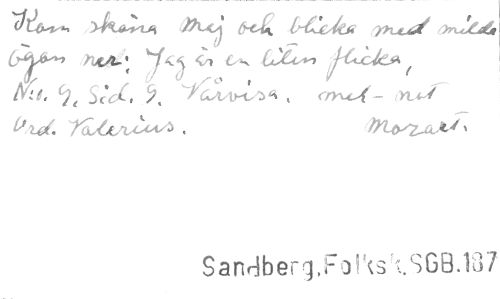 Kom sköna Maj och blicka med milda
ögon ner: Jag är en liten flicka,
N:o. 9, Sid. 9. Vårvisa. mel-not
Ord. Valerius. Mozart.
Sandberg,Folksk.SGB.187